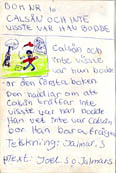 BOK NR 10
CALSÅN OCH INTE
VISSTE VAR HAN BODDE
Calsån och
inte visste
var han bodde
är den första boken
Den handlar om att
Calsån
inte visste
var han bodde
Han vet inte var Calsån
bor Han bara frågar
Teckning: Jalmar. S
text: Joel. S o Jalmars